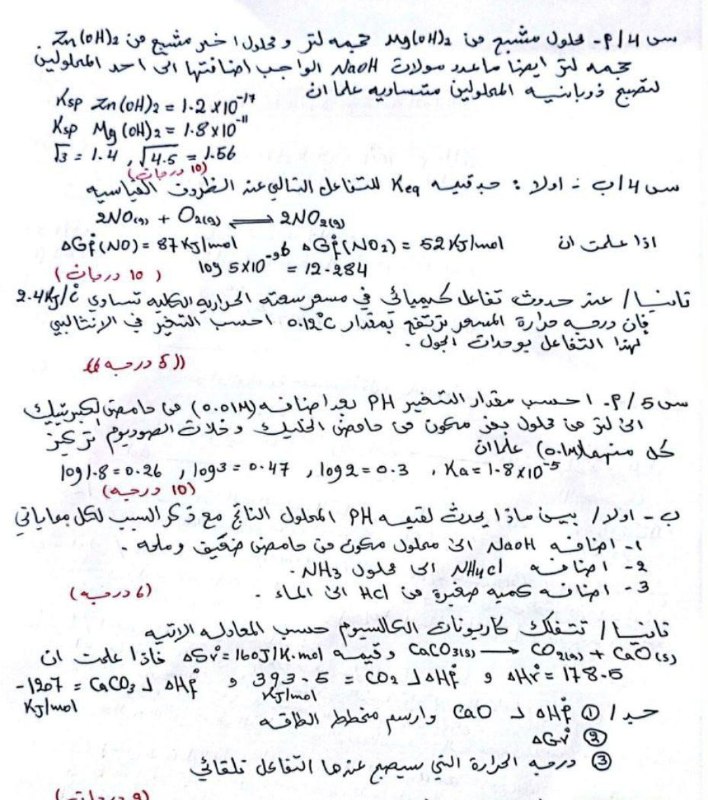 س4/P- محلول مشبع من Mg(OH)2 حجمه لتر ومحلول اخر مشبع من Zn(OH)2
حجمه لتر ايضا ما عدد مولات NaOH الواجب اضافتها الى احد المحلولين
لتصبح ذوبانيه المحلولين متساويه علما ان
Ksp Zn(OH)2 = 1.2×10⁻¹⁷
Ksp Mg(OH)2 = 1.8×10⁻¹¹
√3 = 1.4 , √4.5 = 1.56
(10 درجات)
س4/ب - اولا : جد قيمه Keq للتفاعل التالي عند الظروف القياسيه
2NO(g) + O2(g) ⇌ 2NO2(g)
اذا علمت ان ΔG°f(NO) = 87 KJ/mol ΔG°f(NO2) = 52 KJ/mol
log 5×10 = 12.284
(10 درجات)
ثانيا/ عند حدوث تفاعل كيميائي في مسعر سعته الحراريه الكليه تساوي 2.4 KJ/C°
فان درجه حرارة المسعر ترتفع بمقدار 0.12°C احسب التغير في الانثالبي
لهذا التفاعل بوحدات الجول .
(5 درجه)
س5/P- احسب مقدار التغير PH بعد اضافه (0.01M) من حامض الكبريتيك
الى لتر من محلول بفر مكون من حامض الخليك وخلات الصوديوم تركيز
كل منهما (0.1M) علما ان
log1.8 = 0.26 , log3 = 0.47 , log2 = 0.3 , Ka = 1.8×10⁻⁵
(10 درجه)
ب - اولا/ بين ماذا يحدث لقيمه PH المحلول الناتج مع ذكر السبب لكل مماياتي
1- اضافه NaOH الى محلول مكون من حامض ضعيف وملحه .
2- اضافه NH4Cl الى محلول NH3 .
3- اضافه كميه صغيرة من HCl الى الماء .
(6 درجه)
ثانيا/ تتفكك كاربونات الكالسيوم حسب المعادله الاتيه
CaCO3(s) → CO2(g) + CaO(s) وقيمه ΔS°r = 160 J/K.mol فاذا علمت ان
ΔH°r = 178.5 و ΔH°f لـ CO2 = 393.5 KJ/mol و ΔH°f لـ CaCO3 = -1207 KJ/mol
جد / ① ΔH°f لـ CaO وارسم مخطط الطاقه
② ΔG°r
③ درجه الحرارة التي سيصبح عندها التفاعل تلقائي
(9 درجات)